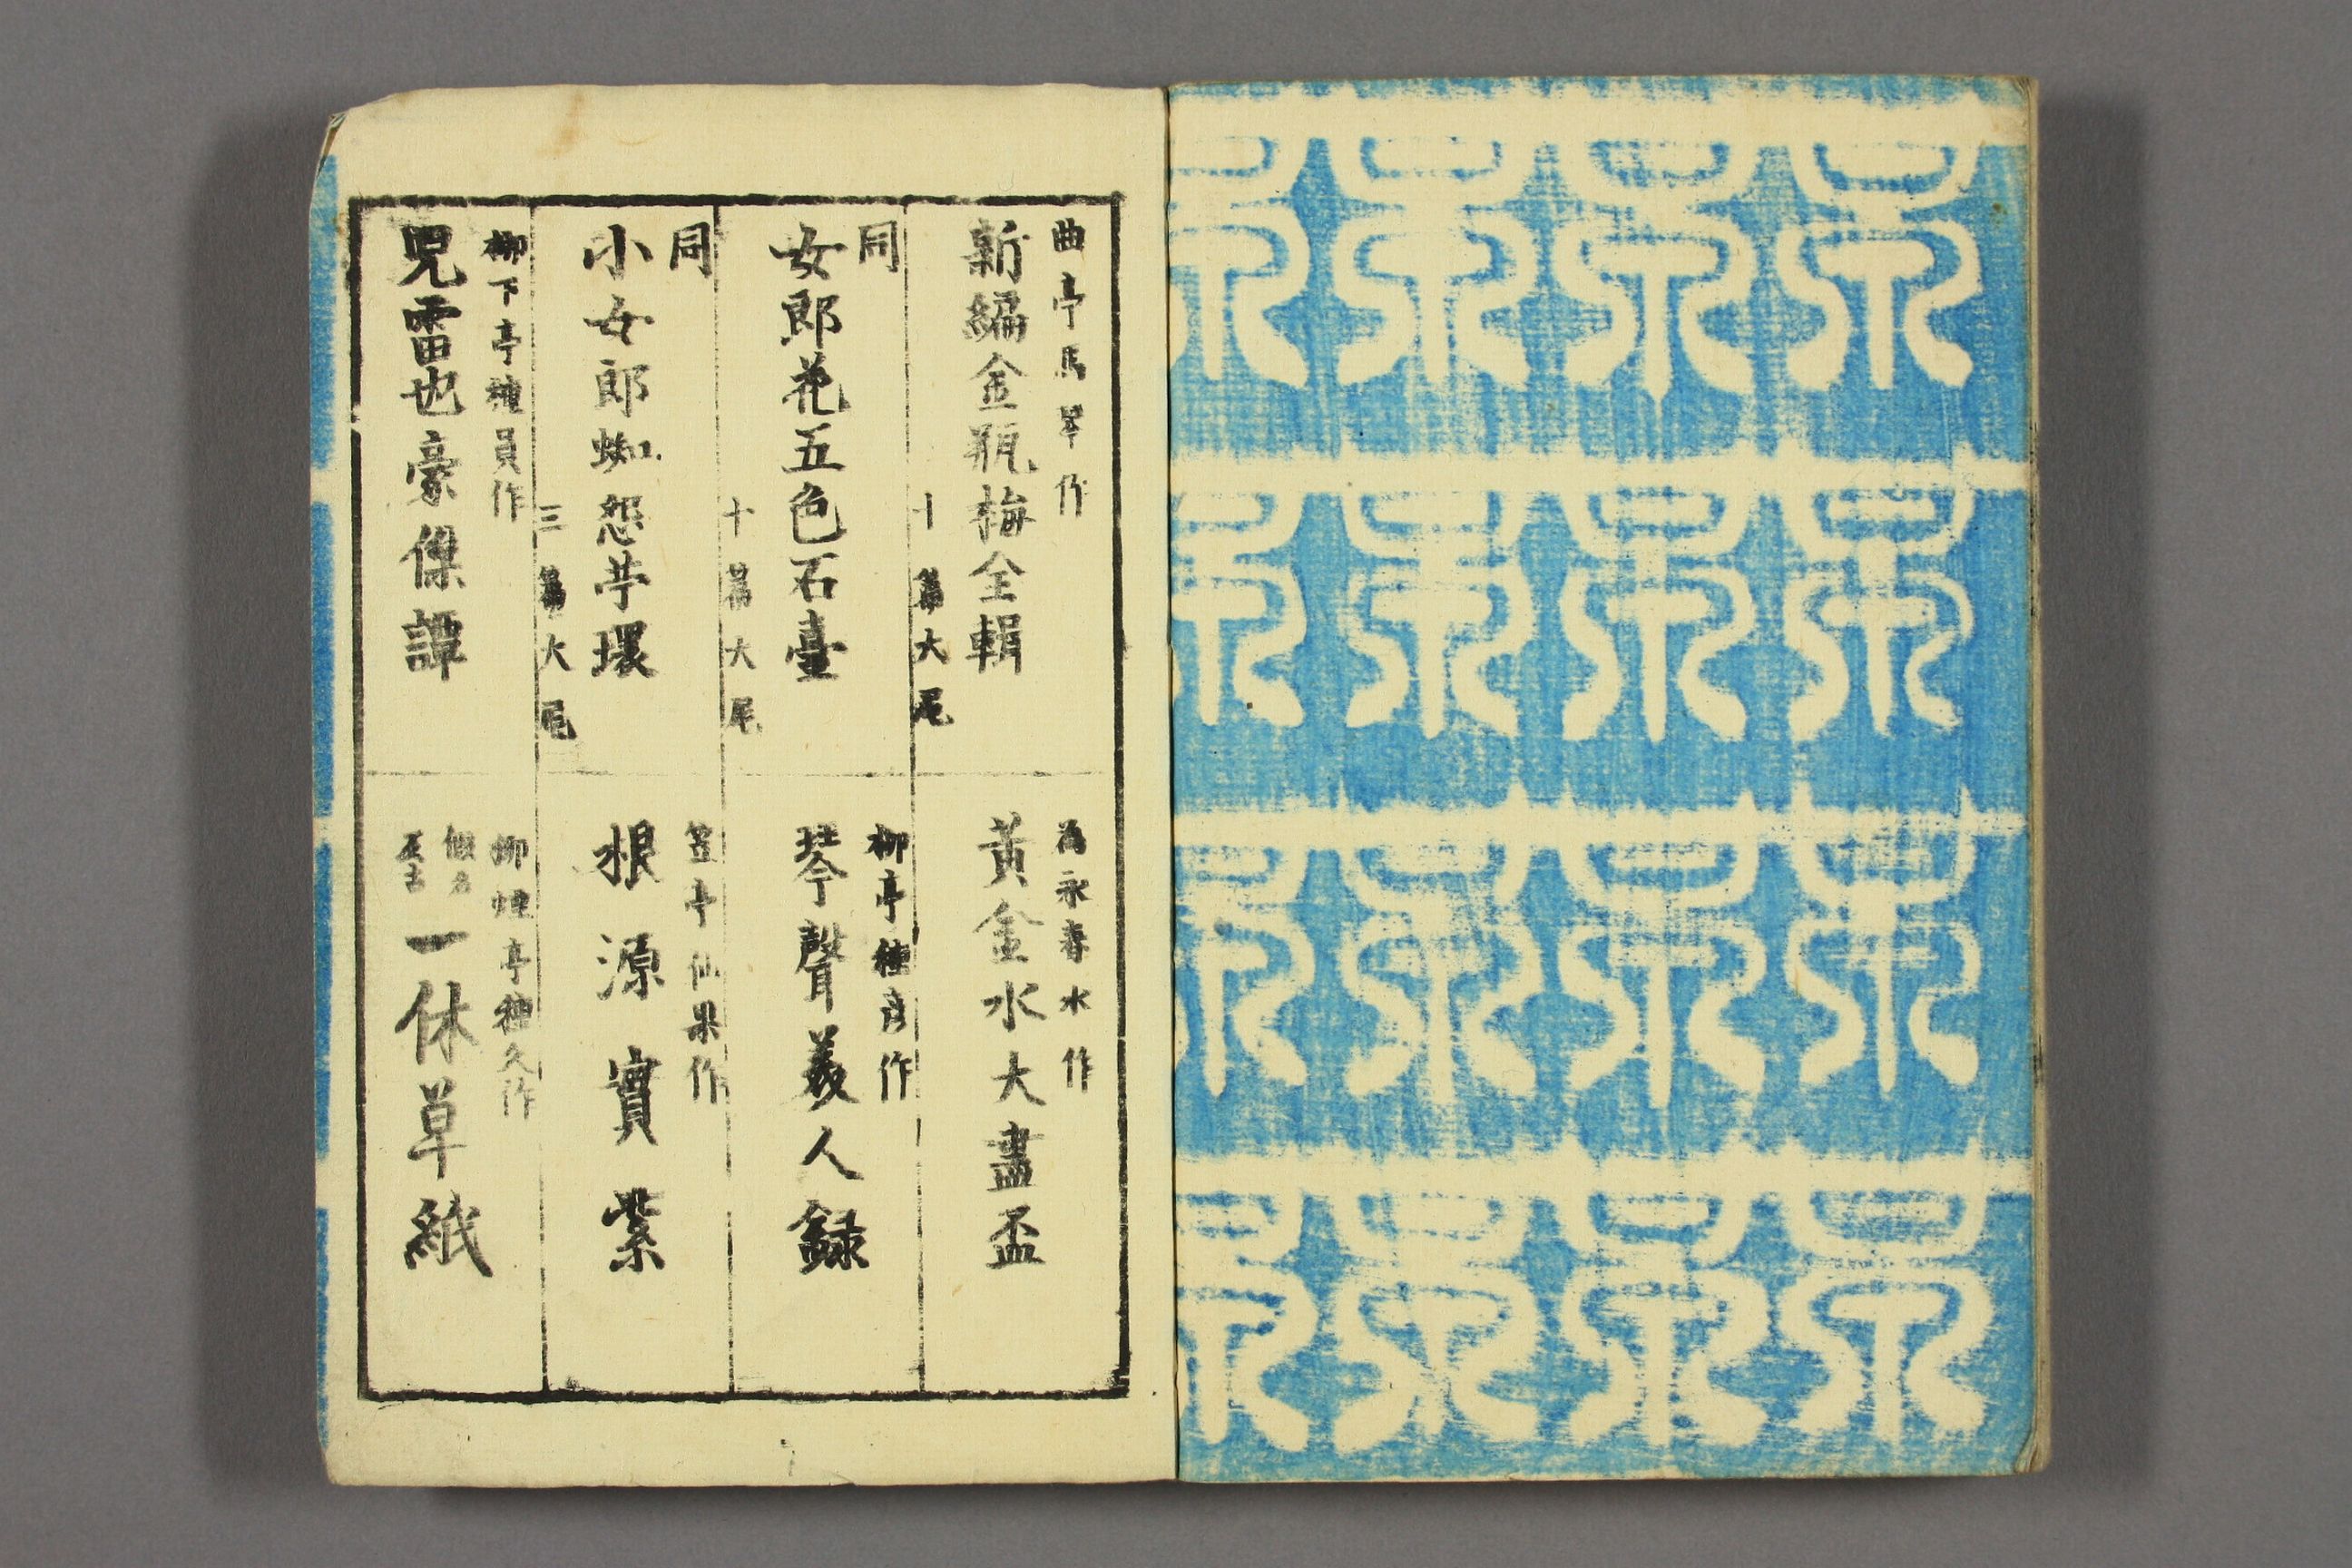 曲亭馬琴作
新編金瓶梅全輯
十篇大尾
同
女郎花五色石臺
十篇大尾
同
小女郎蜘怨苧環
三篇大尾
柳下亭種員作
児雷也豪傑譚
為永春水作
黄金水大盡盃
柳亭種彦作
琴聲美人録
笠亭仙果作
根源實紫
柳煙亭種久作
假名反古一休草紙